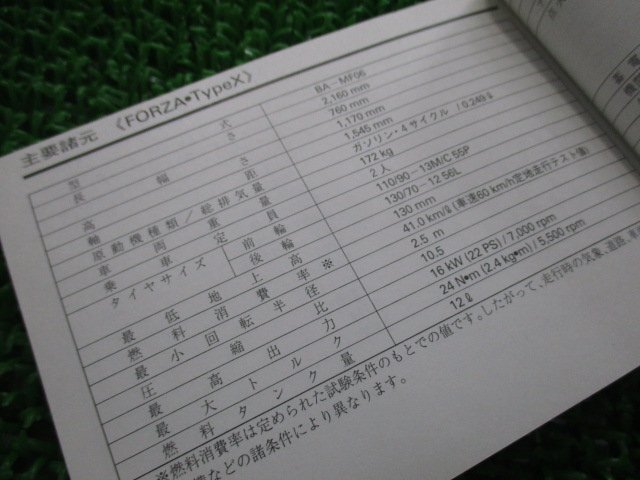 主要諸元 《FORZA•TypeX》
型 式 BA-MF06
長 さ 2,160 mm
幅 760 mm
高 さ 1,170 mm
軸 距 1,545 mm
原動機種類/総排気量 ガソリン・4サイクル / 0.249ℓ
車両重量 172 kg
乗車定員 2人
タイヤサイズ 前輪 110/90-13M/C 55P
後輪 130/70-12 56L
最低地上高 130 mm
燃料消費率※ 41.0 km/ℓ (車速60 km/h定地走行テスト値)
最小回転半径 2.5 m
圧縮比 10.5
最高出力 16 kW (22 PS) / 7,000 rpm
最大トルク 24 N•m (2.4 kg•m) / 5,500 rpm
燃料タンク量 12ℓ
※燃料消費率は定められた試験条件のもとでの値です。したがって、走行時の気象、道路、車
などの諸条件により異なります。